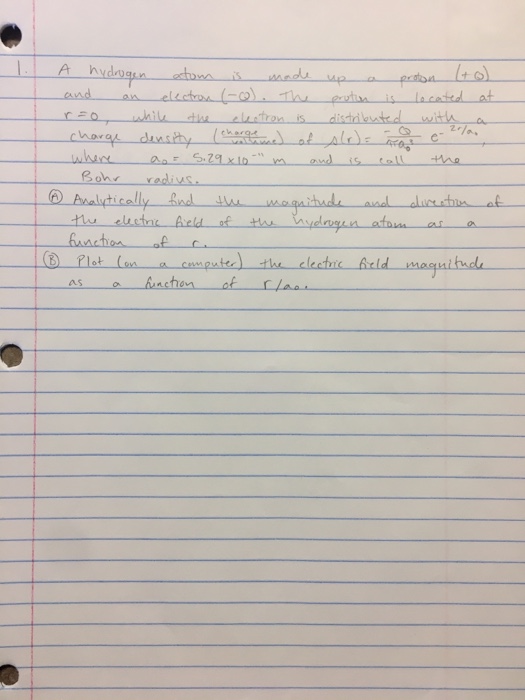 1. A hydrogen atom is made up a proton (+Q)
and an electron (-Q). The proton is located at
r=0, while the electron is distributed with a
charge density (charge/volume) of s(r) = -Q/πa₀³ e^-2r/a₀,
where a₀ = 5.29 x 10^-11 m and is call the
Bohr radius.
Ⓐ Analytically find the magnitude and direction of
the electric field of the hydrogen atom as a
function of r.
Ⓑ Plot (on a computer) the electric field magnitude
as a function of r/a₀.